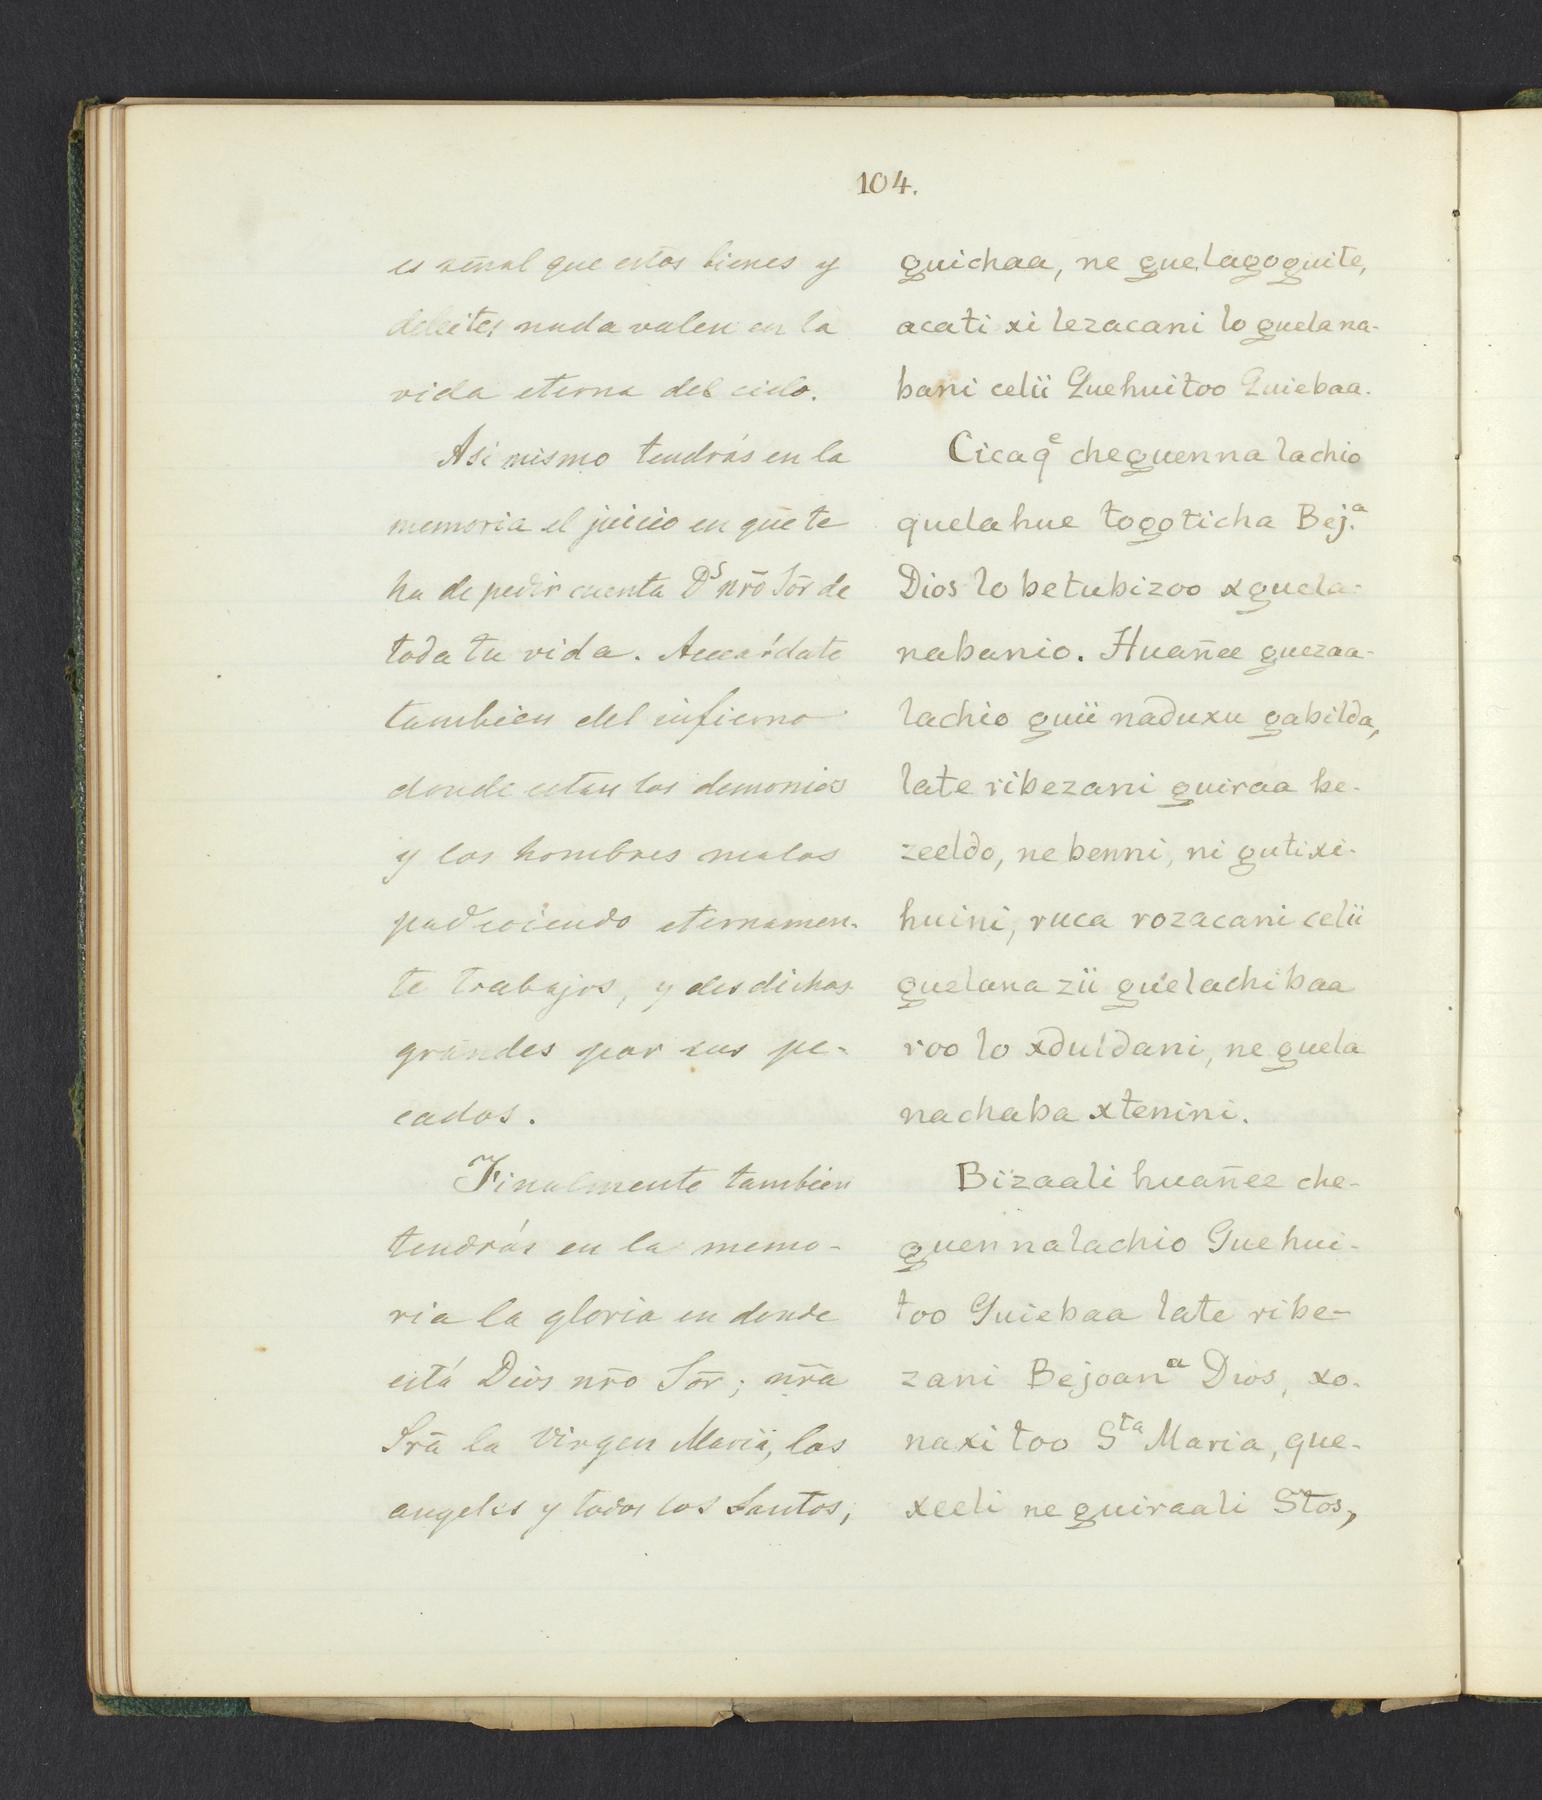 104.
es señal que estos bienes y
deleites nada valen en la
vida eterna del cielo.
Asi mismo tendrás en la
memoria el juicio en que te
ha de pedir cuenta Dˢ nr̃o Sõr de
toda tu vida. Acuérdate
tambien del infierno
donde estan los demonios
y los hombres malos
padeciendo eternamen-
te trabajos, y desdichas
grandes por sus pe-
cados.
Finalmente tambien
tendrás en la memo-
ria la gloria en donde
está Dios nr̃o Sõr; nr̃a
Srã la Virgen Maria, los
angeles y todos los Santos,
guichaa, ne guelagoguite,
acati xi lezacani lo guela na-
bani celii Guehuitoo Guiebaa.
Cicaqᵉ cheguenna lachio
quelahue togoticha Bej.ᵃ
Dios lo betubizoo xguela-
nabanio. Huañee guezaa-
lachio guii naduxu gabilda,
late ribezani guiraa be-
zeeldo, ne benni, ni gutixi-
huini, ruca rozacani celii
guelana zii guelachibaa
roo lo xduldani, ne guela
nachaba xtenini.
Bizaali huañee che-
guennalachio Guehui-
too Guiebaa late ribe-
zani Bejoanᵃ Dios, xo-
naxi too Sᵗᵃ Maria, que-
xeeli ne guiraali Stos,